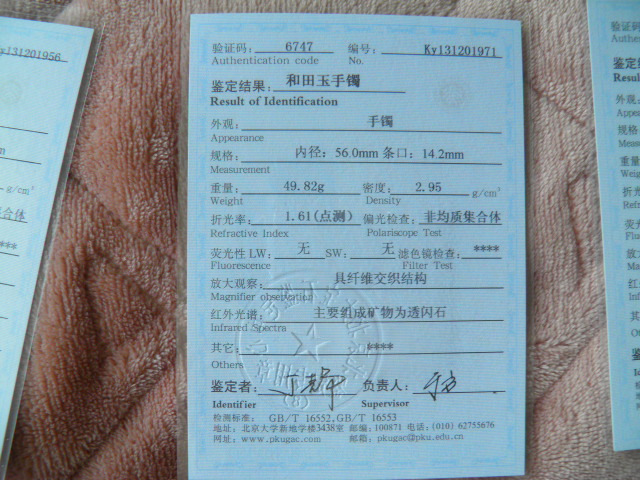 Ky131201956
验证码: 6747 编号: Ky131201971
Authentication code No.
鉴定结果: 和田玉手镯
Result of Identification
外观: 手镯
Appearance
规格: 内径: 56.0mm 条口: 14.2mm
Measurement
重量: 49.82g 密度: 2.95 g/cm³
Weight Density
折光率: 1.61(点测) 偏光检查: 非均质集合体
Refractive Index Polariscope Test
荧光性 LW: 无 SW: 无 滤色镜检查: ****
Fluorescence Filter Test
放大观察: 具纤维交织结构
Magnifier observation
红外光谱: 主要组成矿物为透闪石
Infrared Spectra
其它: ****
Others
鉴定者: 负责人:
Identifier Supervisor
检测标准: GB/T 16552,GB/T 16553
地址: 北京大学新地学楼3438室 邮编: 100871 电话: (010) 62755676
网址: www.pkugac.com 邮箱: pkugac@pku.edu.cn
g/cm³
集合体
****